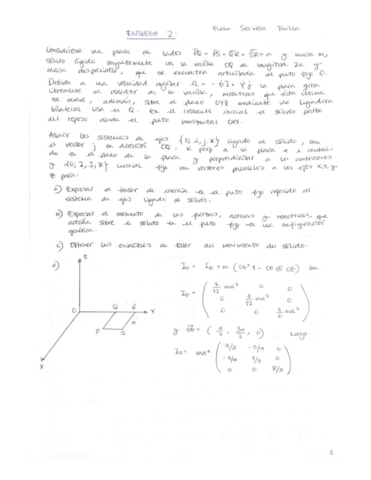 ENTREGA 2.
Considérese una placa de lados PQ = PS = QR = SR = a y masa m,
sólido rígido conjuntamente con la varilla OQ de longitud 2a y
masa despreciable, que se encuentra articulada al punto fijo O.
Debido a una velocidad angular la placa gira
libremente al rededor de la varilla, mientras que esta última
se mueve, además, sobre el plano OYZ mediante una ligadura
bilateral lisa en Q. En el instante inicial el sólido parte
del reposo desde el punto horizontal OXY.
Asumir los sistemas de ejes {O; i, j, k} ligado al sólido, con
el vector j en dirección OQ, k perp. a la placa e i contenido
en el plano de la placa y perpendicular a los anteriores
y {O; I, J, K} inercial fijo con vectores paralelos a los ejes X, Y, y
Z para:
a) Expresar el tensor de inercia en el punto fijo referido al
sistema de ejes ligado al sólido.
b) Expresar el momento de las fuerzas, activas y reactivas, que
actúan sobre el sólido en el punto fijo en una configuración
genérica.
c) Obtener las ecuaciones de Euler del movimiento del sólido.
a)
Z
O Q R Y
P S
a
X
I_O = I_G + m (OG² 1 - OG ⊗ OG) con
I_G = ( 1/12 ma² 0 0
0 1/12 ma² 0
0 0 1/6 ma² )
y OG = ( a/2, 3a/2, 0 ). Luego
I_O = ma² ( 7/3 -3/4 0
-3/4 1/3 0
0 0 8/3 )
1